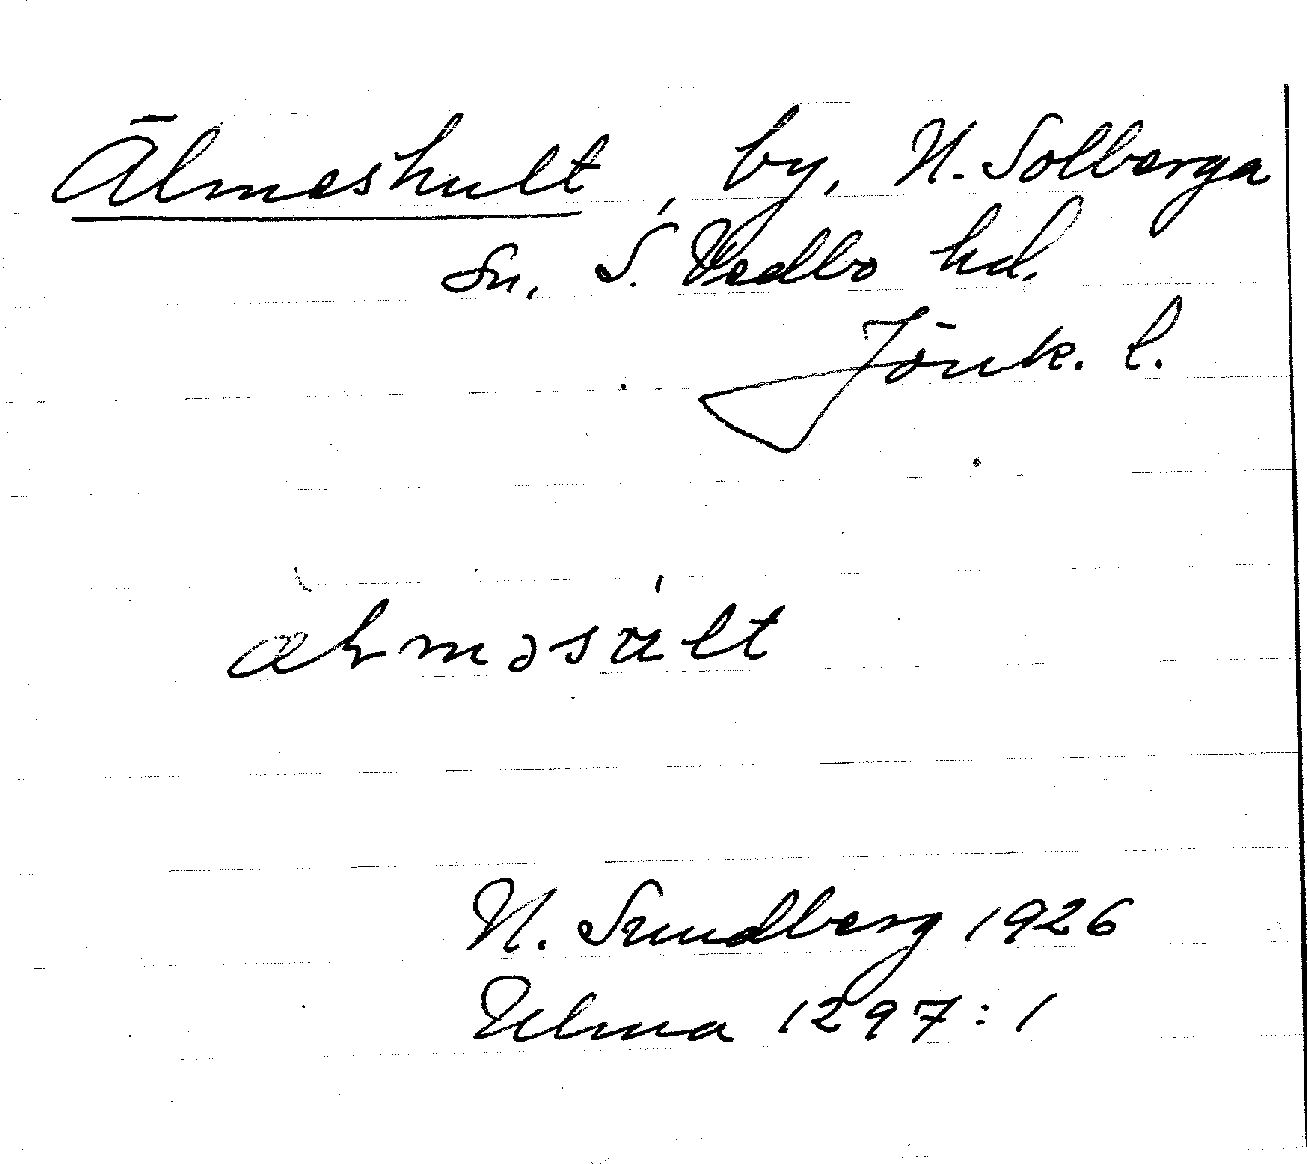 Älmeshult, by, N. Solberga
sn. S. Vedbo hd.
Jönk. l.
N. Sundberg 1926
Ulma 1297:1